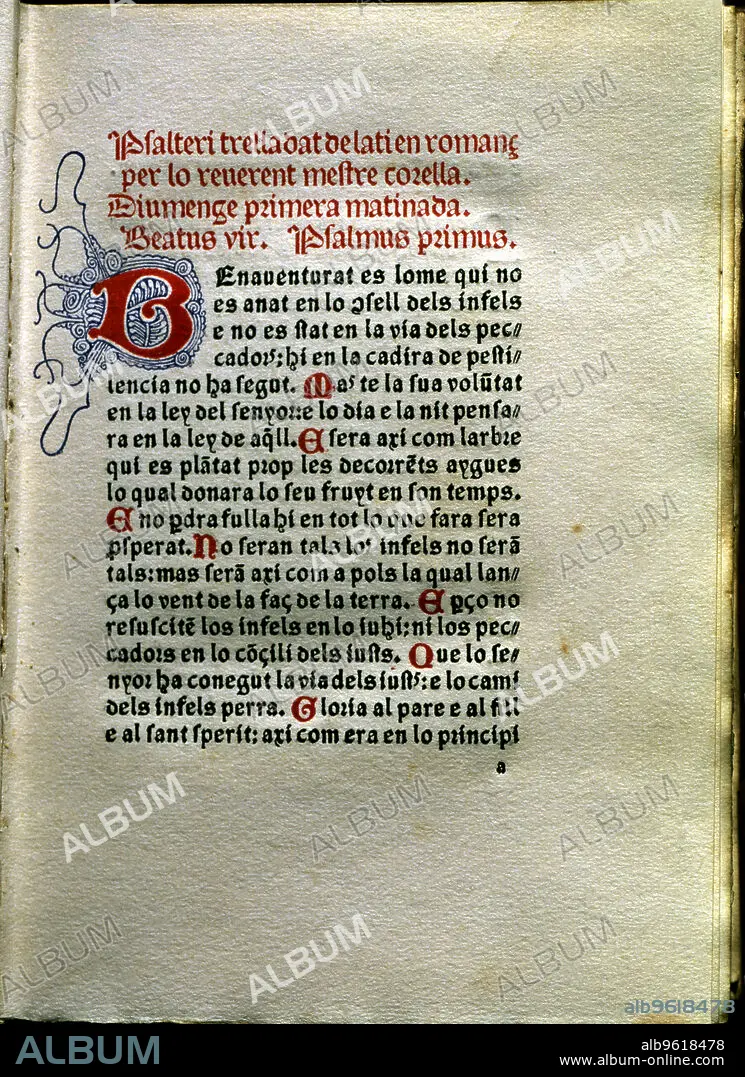 Psalteri trelladat de lati en romanç
per lo reuerent mestre corella.
Diumenge primera matinada.
Beatus vir. Psalmus primus.
BEnauenturat es lome qui no
es anat en lo ꝯsell dels infels
e no es stat en la via dels pec⸗
cadors: hi en la cadira de pesti⸗
lencia no ha segut. Mas te la sua volūtat
en la ley del senyor: e lo dia e la nit pensa⸗
ra en la ley de aq̄ll. E sera axi com larbre
qui es plātat prop les decorrēts aygues
lo qual donara lo seu fruyt en son temps.
E no ꝑdra fulla hi en tot lo que fara sera
ꝓsperat. No seran tals los infels no serā
tals: mas serā axi com a pols la qual lan⸗
ça lo vent de la faç de la terra. E ꝑço no
resuscitē los infels en lo iuhi: ni los pec⸗
cadors en lo cōçili dels iusts. Que lo se⸗
nyor ha conegut la via dels iusts: e lo cami
dels infels perra. Gloria al pare e al fill
e al sant sperit: axi com era en lo principi
a
ALBUM
alb9618478
alb9618478
www.album-online.com